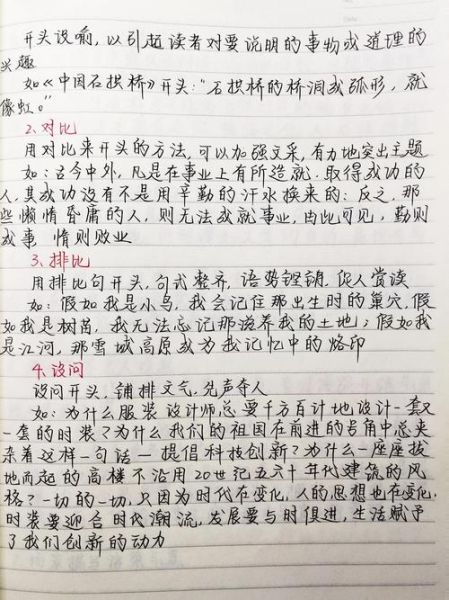 开头设喻,以引起读者对要说明的事物或道理的
兴趣
如《中国石拱桥》开头:"石拱桥的桥洞成弧形,就
像虹。"
2、对比
用对比来开头的方法,可以加强文采,有力地突出主题
如:古今中外,凡是在事业上有所造就.取得成功的
人,其成功没有不是用辛勤的汗水换来的;反之,那
些懒惰昏庸的人,则无法成就事业,由此可见,勤则
成事 惰则败业
3、排比
用排比句开头,句式整齐,语势铿锵,促人赏读
如:假如我是小鸟,我会记住那出生时的巢穴,假
如我是树苗,我无法忘记那滋养我的土地;假如我
是江河,那雪域高原成为我记忆中的烙印
4、设问
设问开头,铺排文气,先声夺人
如:为什么服装设计师总要千方百计地设计一套又
一套的时装?为什么我们的祖国在前进的号角中总夹
杂着这样一句话——提倡科技创新?为什么一座座拔
地而起的高楼不沿用20世纪五六十年代建筑的风
格?一切的一切,只因为时代在变化,人的思想也在变化,
时装要迎合时代潮流,发展要与时俱进,生活赋予
了我们创新的动力